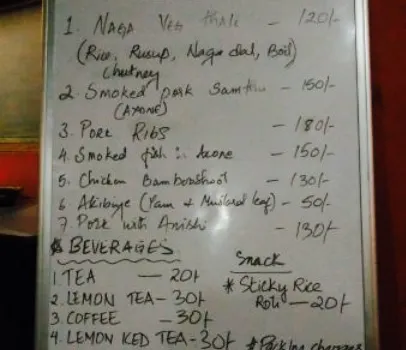 1. NAGA Veg thali - 120/-
(Rice, Rusup, Naga dal, Boil)
Chutney
2. Smoked pork Samthu - 150/-
(AXONE)
3. Pork RIBS - 180/-
4. Smoked fish in Axone - 150/-
5. Chicken Bambooshoot - 130/-
6 Akibiye (Yam + Mustard leaf) - 50/-
7. Pork with Anishi - 130/-
BEVERAGES
1. TEA — 20/-
2. LEMON TEA - 30/-
3. COFFEE - 30/-
4. LEMON ICED TEA - 30/-
Snack
* Sticky Rice
Roti — 20/-
* Packing charges